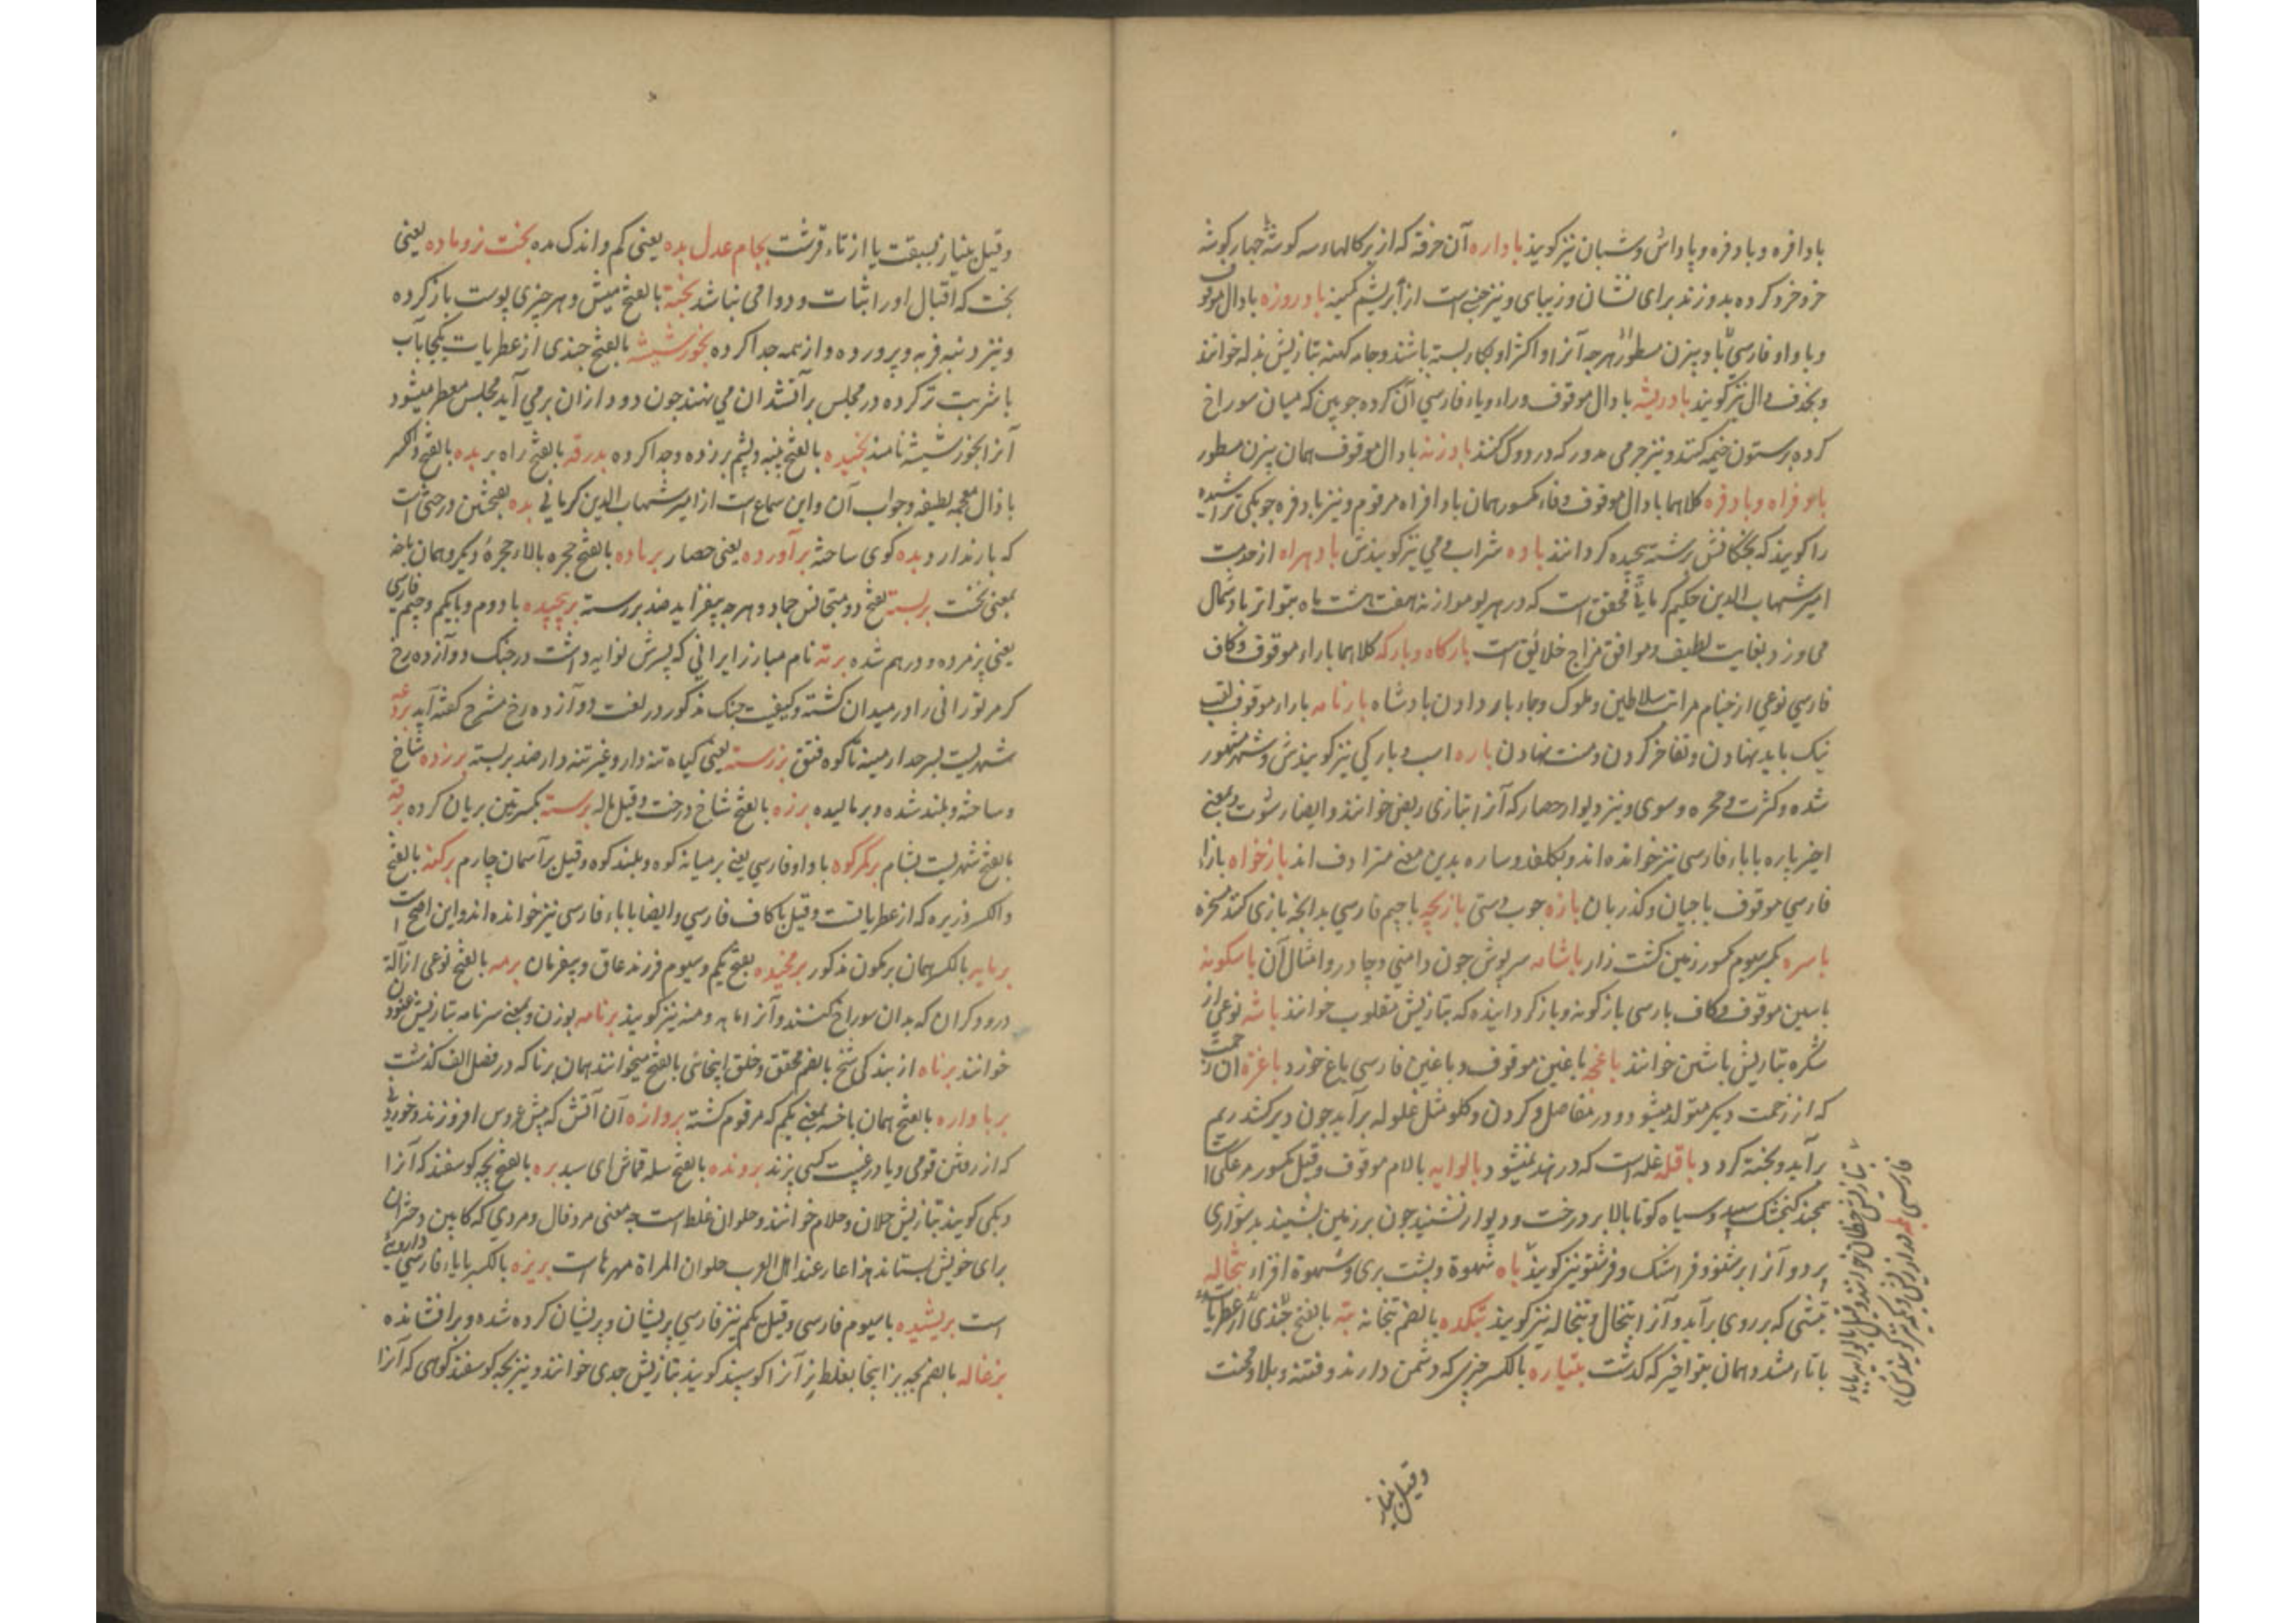 بادافره و بادفره و پاداش و شبان نیز کویند باداره آن خرفه که از پرکالهاء سه کوشه چهار کوشه
خرد خرد کرده بدوزند برای نشان و زیبای و نیز جنسی است از ابریشم کمینه بادروزه با دال موقوف
و با واو فارسی مسطور هرچه آنرا و اکثر اوبکار بسته باشند و جامه کهنه بتازیش بذله خوانند
و بحذف دال نیز کویند بادریشه با دال موقوف و راء و یاء فارسی آن کرده چوبین که میان سوراخ
کرده بر ستون خیمه کنند و نیز چرمی مدور که در دوک کنند بادزنه با دال موقوف همان بیزن مسطور
بادفراه و بادفره کلاهما با دال موقوف و فاء مکسور همان بادافراه مرقوم و نیز بادفره چوبکی تراشیده
را کویند که بچکانش رشته پیچیده کردانند باده شراب و می نیز کویندش بادهراه از خدمت
امیر شهاب الدین حکیم کرمانی محقق است که در هر یو موازنه هفت هشت ماه بتواتر باد شمال
می وزد بغایت لطیف و موافق مزاج خلائق است بارکاه و بارکه کلاهما با راء موقوف و کاف
فارسی نوعی از خیام مراتب سلاطین و ملوک و جاء بار دادن بادشاه بارنامه با راء موقوف لقب
نیک باید نهادن و تفاخر کردن و منت نهادن باره اسب و بارکی نیز کویندش و شهر مشهور
شده و کثرت و حجره و سوی و نیز دیوار حصار که آنرا بتازی ربض خوانند و ایضا رشوت و بمعنی
اخیر پاره با باء فارسی نیز خوانده اند و بکلفد و ساره بدین معنی مترادف اند بازخواه بازاء
فارسی موقوف باجبان و کذربان بازه چوب دستی بازیچه با جیم فارسی بدانچه بازی کنند مسخره
باسره بکسر سیوم مکسور زمین کشت زار باشامه سرپوش چون دامنی و چادر و امثال آن باسکونه
با سین موقوف و کاف پارسی بازکونه و باز کردانیده که بتازیش مقلوب خوانند باشه نوعی از
شکره بتازیش باشین خوانند باغچه با غین موقوف و با غین فارسی باغ خورد باغره آن زحمت
که از زحمت دیکر متولد میشود و در مفاصل و کردن و کلو مثل غلوله برآید چون دیر کشد ریم
برآید و پخته کردد باقله غله است که در هند نمیشود بالوایه بالام موقوف و قیل مکسور مرغکی است
همچند کنجشک سپید و سیاه کوتا بالا بر درخت و دیوار نشیند چون بر زمین بنشیند بدشواری
پرد و آنرا پرستو و فراشتک و فرشتو نیز کویند باه شهوة و پشت پری و شهوة افزار بتخاله
تبشی که بر روی برآید و آنرا بتخال و تبخاله نیز کویند بتکده بالضم بتخانه بته بالفتح چندی از عطریات
با تاء مشدد همان بتو اخیر که کذشت بتیاره بالکسر چیزی که دشمن دارند و فتنه و بلا و محنت
وقیل بنیاز
وقیل بنیاز بسبقت یا از تاء قرشت بجام عدل بده یعنی کم و اندک مده بخت نرو ماده یعنی
بخت که اقبال او را ثبات و دوامی نباشد بخته بالفتح میش و هر چیزی پوست باز کرده
و نیز دنبه فربه و پرورده و از همه جدا کرده بخور شیشه بالفتح چندی از عطریات یکجا بآب
یا شربت تر کرده در مجلس بر آتشدان می نهند چون دود ازان برمی آید مجلس معطر میشود
آنرا بخور شیشه نامند بخیده بالفتح پنبه و پشم برزده و جدا کرده بدرقه بالفتح راه بر بده بالفتح و الکسر
با ذال معجمه لطیفه و جواب آن و این سماع است از امیر شهاب الدین کرمانی بده بفتحتین درختی است
که بار ندارد و بده کوی ساخته برآورده یعنی حصار برباده بالفتح حجره بالاء حجرهٔ دیکر و همان باخه
بمعنی نخست بربسته بفتح دو متجانس جماد و هرچه نیفزاید ضد بررسته برچیده با دوم و با یکم و جیم فارسی
یعنی پژمرده و درهم شده برته نام مبارز ایرانی که پسرش نوایه داشت در جنک دوآزده رخ
کرمر تورانی را در میدان کشته و کیفیت جنک مذکور در لغت دوآزده رخ مشرح کفته آید بردعه
شهریست بسرحد ارمینه تا کوه فتق بررسته یعنی کیاه تنه دار و غیر تنه دار ضد بربسته برزده شاخ
و ساخته و بلند شده و برمالیده برزه بالفتح شاخ درخت و قیل ماله برسته بکسرتین بریان کرده برقه
بالفتح شهریست بشام برکمرکوه با واو فارسی یعنی بر میانه کوه و بلند کوه و قیل بر آسمان چارم برکنه بالفتح
و الکسر ذریره که از عطریاتست و قیل با کاف فارسی و ایضا با باء فارسی نیز خوانده اند و این اصح است
برمایه بالکسر همان برمکون مذکور برمخیده بفتح یکم و سیوم فرزند عاق و بیفرمان برمه بالفتح نوعی از آلة
درودکران که بدان سوراخ کنند و آنرا ماهه و مته نیز کویند برنامه بوزن و بمعنی سرنامه بتازیش عنوان
خوانند برناه از بندکی شیخ بالضم محقق و خلق اینجائی بالفتح میخوانند همان برنا که در فصل الف کذشت
برباواره بالفتح همان باخسه بمعنی یکم که مرقوم کشته پروازه آن آتش که پیش عروس افروزند و خوردنی
که از رفتن قومی و یا در غیبت کسی پزند برونده بالفتح سله قماش ای سبد بره بالفتح بچه کوسفند که آنرا
دیکی کویند بتازیش حلان و حلام خوانند و حلوان غلط است چه معنی مرد فال و مردی که کابین دختران
برای خویش بستاند هذا عار عند اهل العرب حلوان المراة مهرها است بریزه بالکسر با یاء فارسی داروئی
است بریشیده با سیوم فارسی و قیل یکم نیز فارسی پریشان و پریشان کرده شده و برافشانده
بزغاله بالضم بچه بز اینجا بغلط بز آنرا کوسپند کویند بتازیش جدی خوانند و نیز بچه کوسفند کوهی که آنرا